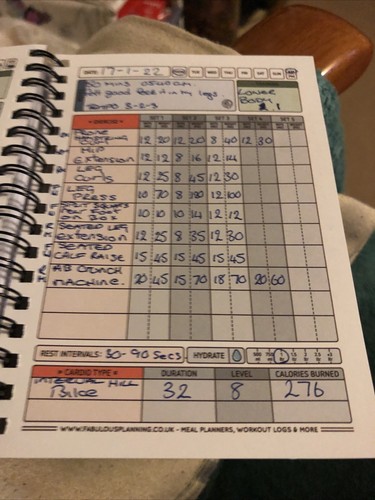 DATE: 17-1-22 MON TUE WED THU FRI SAT SUN
50 mins 0540am
Felt good feel it in my legs
TEMPO 3-2-3
LOWER
BODY 1.1
EXERCISE SET 1 SET 2 SET 3 SET 4 SET 5
12 20 12 20 8 40 12 30
HIP
Extension 12 12 8 16 12 14
LEG
Curls 12 25 8 45 12 30
LEG
PRESS 10 70 8 180 12 100
10 10 10 14 12 12
SEATED LEG
extension 12 25 8 35 12 30
SEATED
CALF RAISE 15 45 15 45 15 45
AB CRUNCH
MACHINE. 20 45 15 70 18 70 20 60
REST INTERVALS: 30-90 Secs HYDRATE
CARDIO TYPE DURATION LEVEL CALORIES BURNED
INTERVAL HILL
Bike 32 8 276
WWW.FABULOUSPLANNING.CO.UK - MEAL PLANNERS, WORKOUT LOGS & MORE